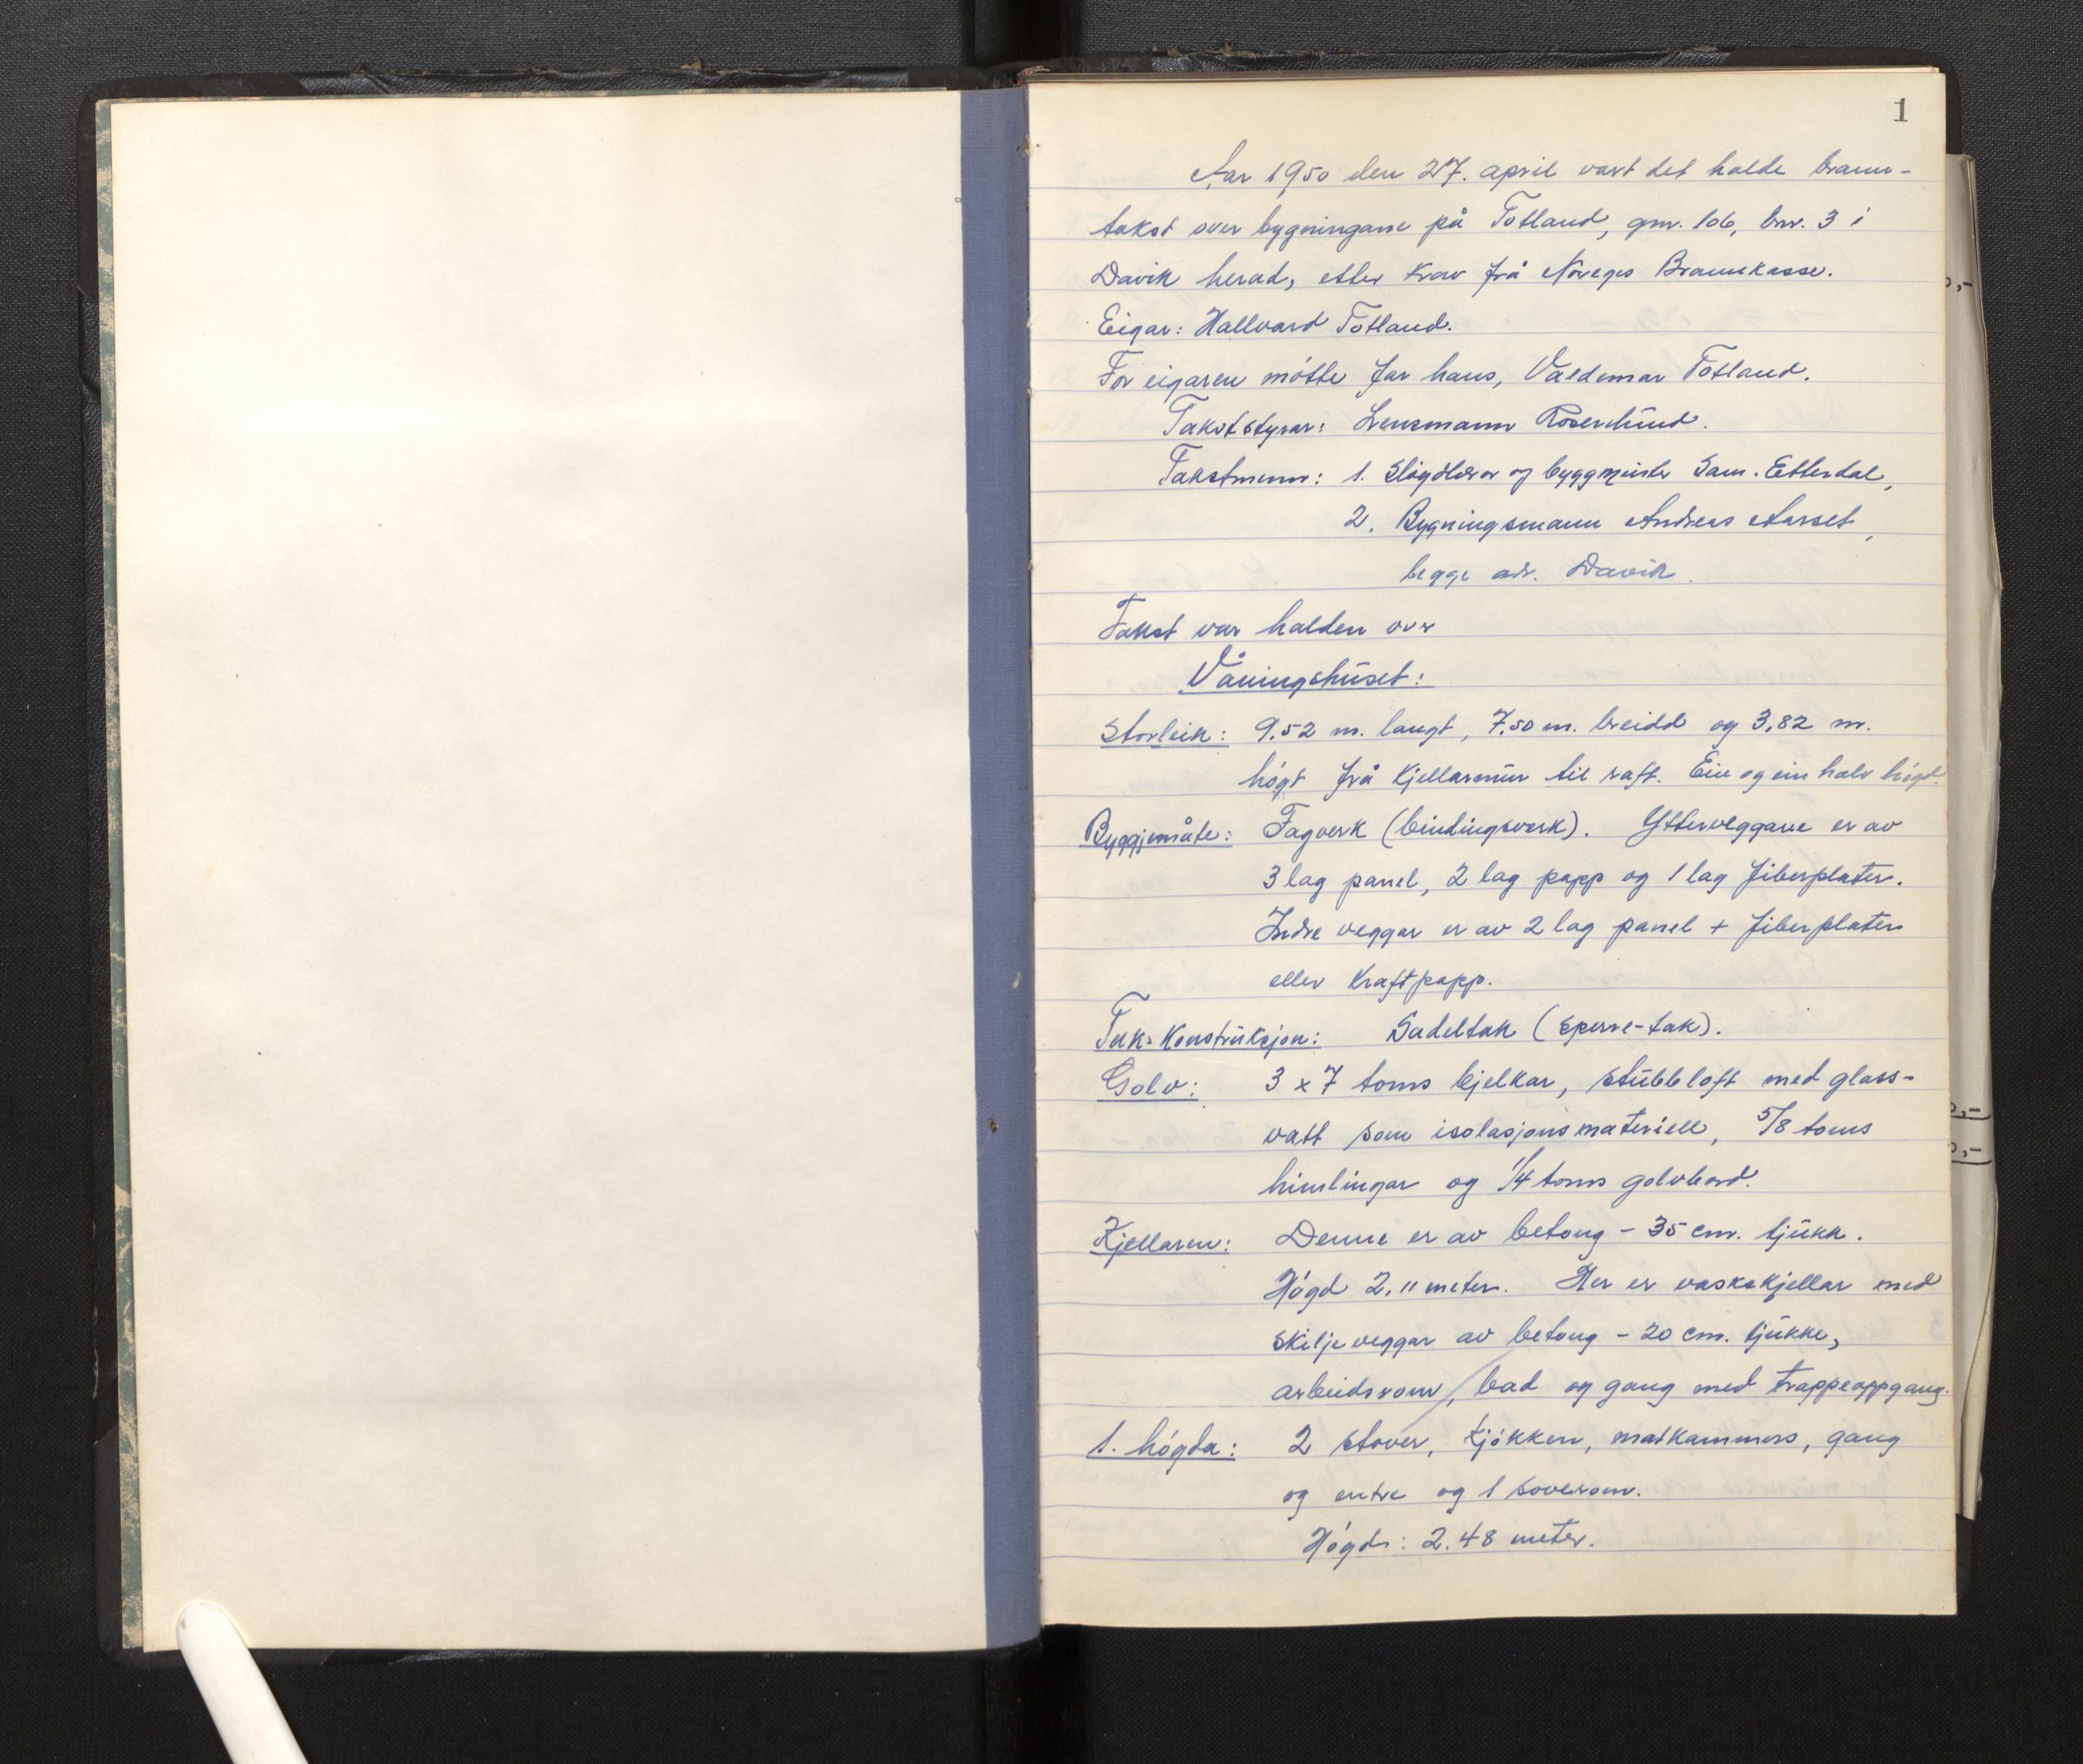 1
Aar 1950 den 27. april vart det halde brann-
takst over bygningane på Totland, gnr. 106, bnr. 3 i
Davik herad, etter krav frå Noregs Brannkasse.
Eigar: Hallvard Totland.
For eigaren møtte far hans, Valdemar Totland.
Takststyrar: Lensmann Rosenlund.
Takstmenn: 1. Sløydlærar og byggmeister Sam. Etterdal,
2. Bygningsmann Andreas Aarset,
begge adr. Davik.
Takst var halden over
Våningshuset:
Storleik: 9.52 m. langt, 7,50 m. breidd og 3,82 m.
høgt frå kjellarmur til raft. Ein og ein halv høgd.
Byggjemåte: Fagverk (bindingsverk). Ytterveggane er av
3 lag panel, 2 lag papp og 1 lag fiberplater.
Indre veggar er av 2 lag panel + fiberplater
eller kraftpapp.
Tak-konstruksjon: Sadeltak (sperre-tak).
Golv: 3 x 7 toms bjelkar, stubbloft med glass-
vatt som isolasjonsmateriell, 5/8 toms
himlingar og 1/4 toms golvbord.
Kjellaren: Denne er av betong - 35 cm. tjukk.
Høgd 2,11 meter. Her er vaskekjellar med
skiljeveggar av betong - 20 cm. tjukke,
arbeidsrom, bad og gang med trappeoppgang.
1. høgda: 2 stover, kjøkken, matkammers, gang
og entre og 1 soverom.
Høgd: 2.48 meter.
,-
,-
,-